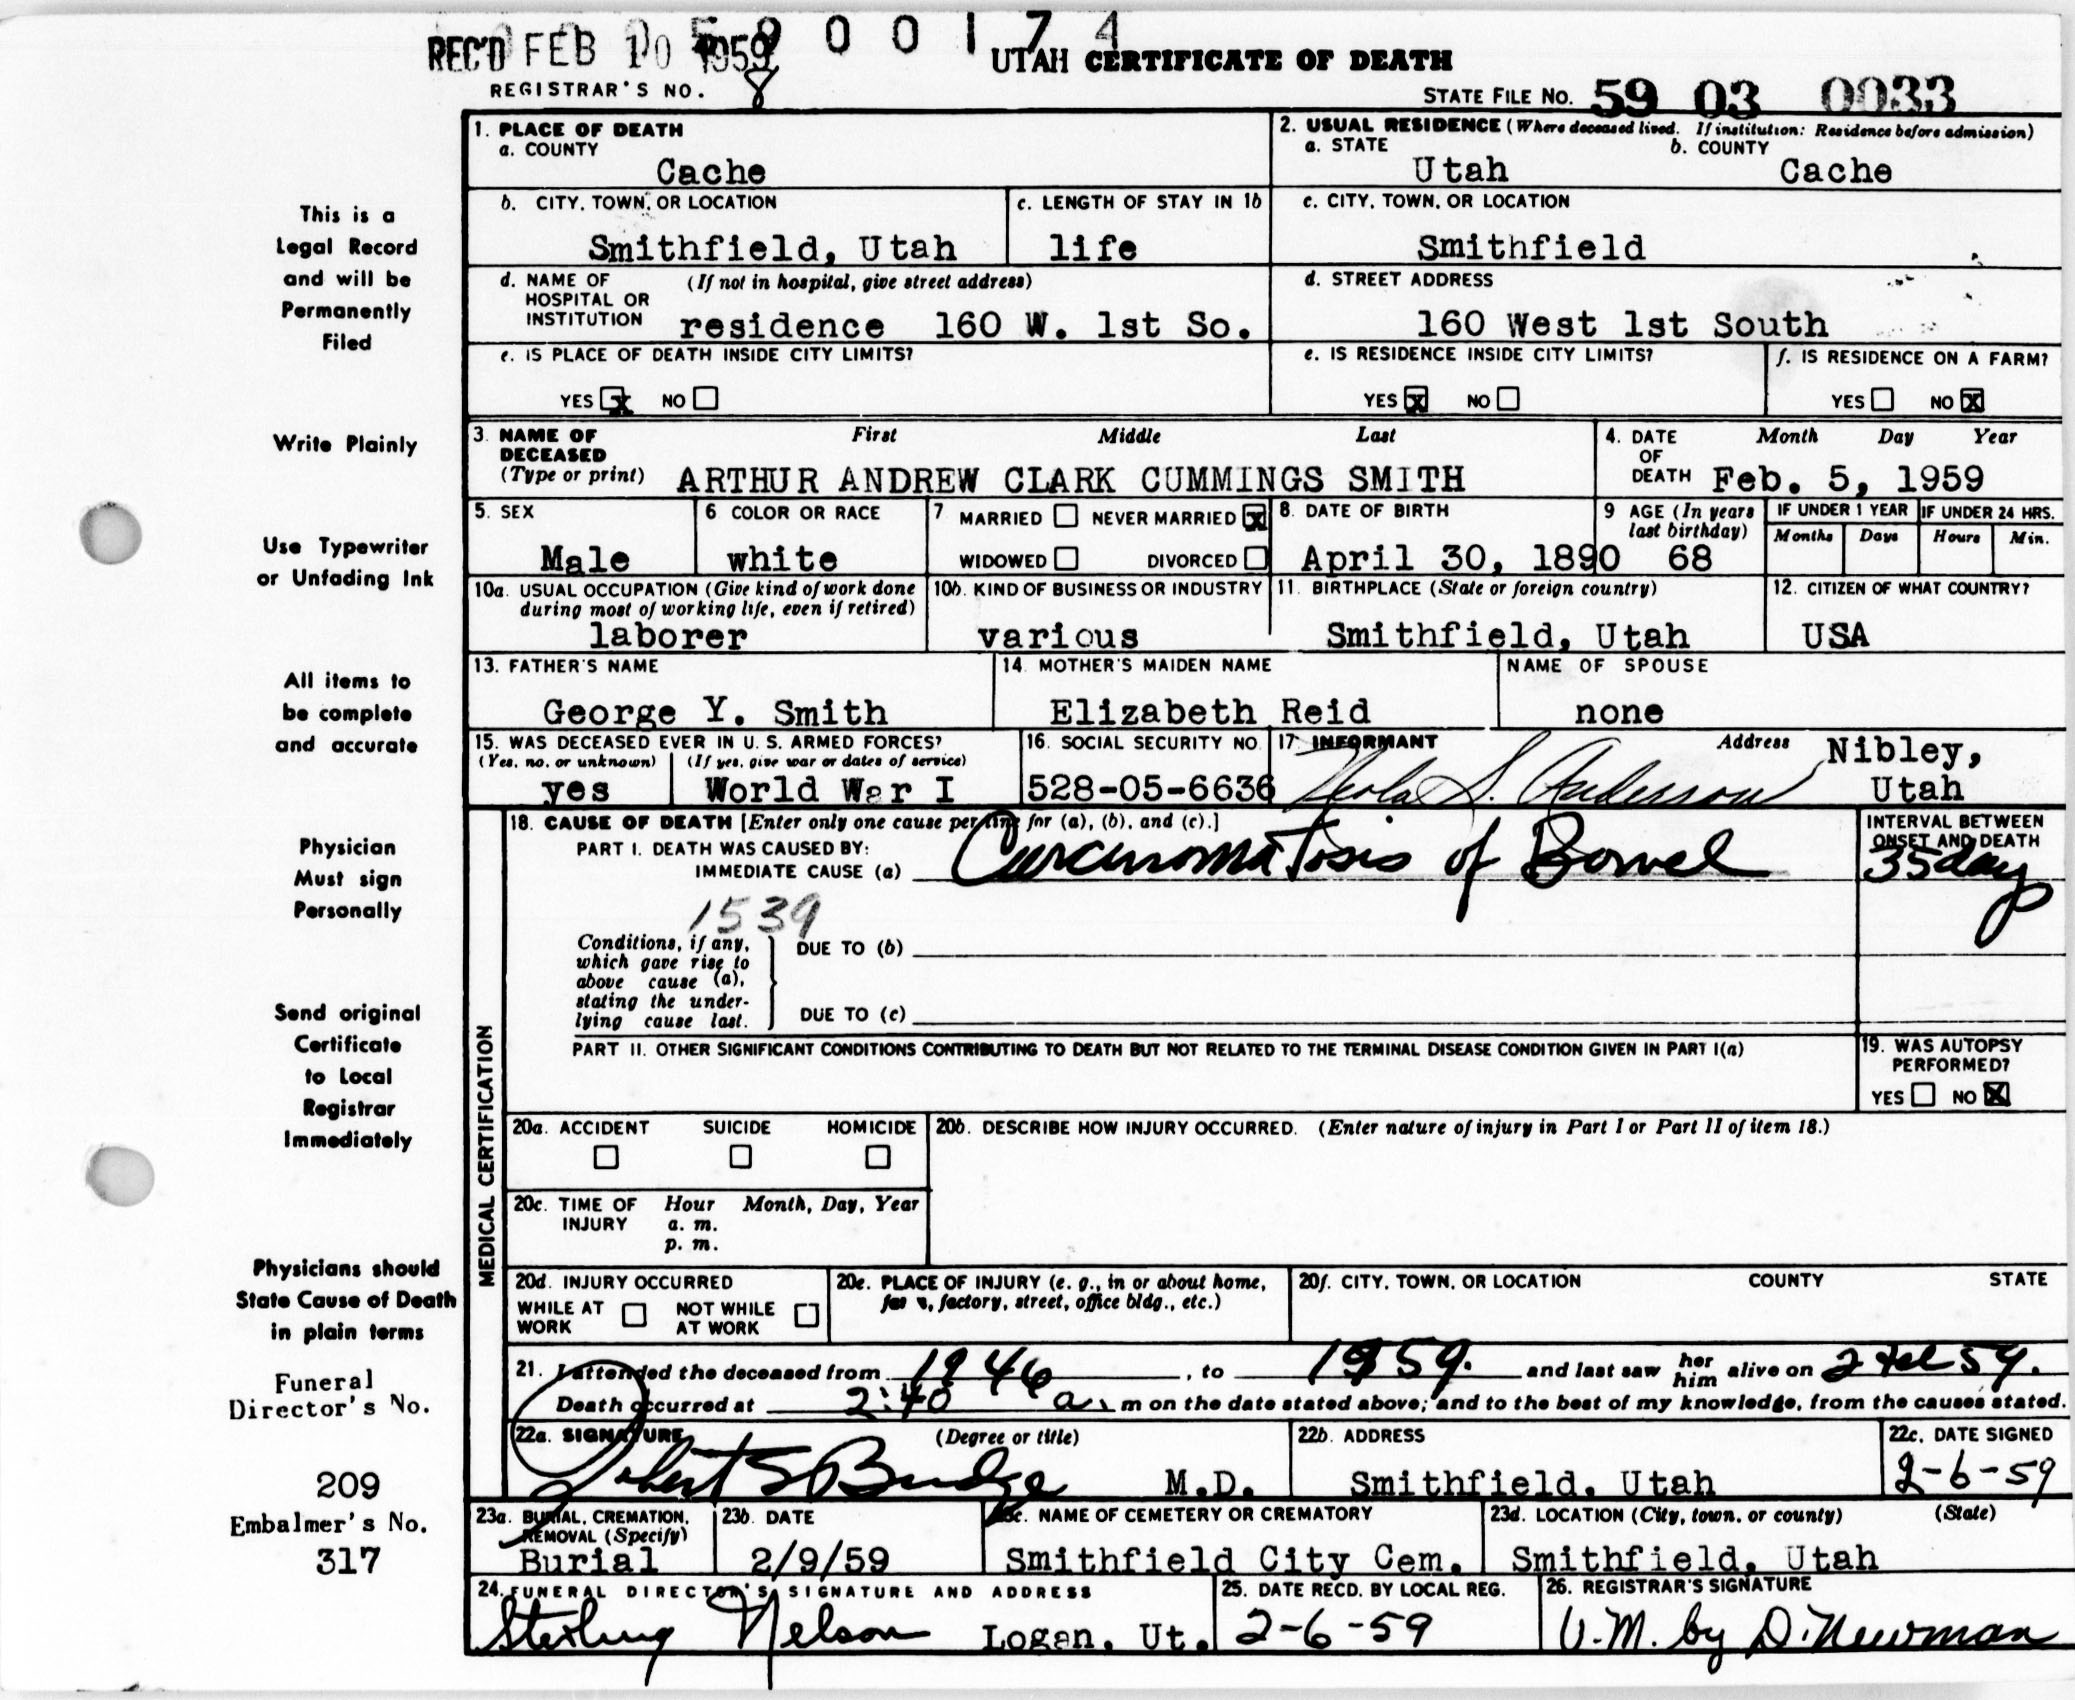 REC'D FEB 10 1959
0 5 9 0 0 1 7 4
UTAH CERTIFICATE OF DEATH
REGISTRAR'S NO. 8
STATE FILE NO. 59 03 0033
This is a
Legal Record
and will be
Permanently
Filed
Write Plainly
Use Typewriter
or Unfading Ink
All items to
be complete
and accurate
Physician
Must sign
Personally
Send original
Certificate
to Local
Registrar
Immediately
Physicians should
State Cause of Death
in plain terms
Funeral
Director's No.
209
Embalmer's No.
317
1. PLACE OF DEATH
a. COUNTY
Cache
2. USUAL RESIDENCE (Where deceased lived. If institution: Residence before admission)
a. STATE b. COUNTY
Utah Cache
b. CITY, TOWN, OR LOCATION
Smithfield, Utah
c. LENGTH OF STAY IN 1b
life
c. CITY, TOWN, OR LOCATION
Smithfield
d. NAME OF (If not in hospital, give street address)
HOSPITAL OR
INSTITUTION residence 160 W. 1st So.
d. STREET ADDRESS
160 West 1st South
e. IS PLACE OF DEATH INSIDE CITY LIMITS?
YES x NO
e. IS RESIDENCE INSIDE CITY LIMITS?
YES x NO
f. IS RESIDENCE ON A FARM?
YES NO x
3. NAME OF First Middle Last
DECEASED
(Type or print) ARTHUR ANDREW CLARK CUMMINGS SMITH
4. DATE Month Day Year
OF
DEATH Feb. 5, 1959
5. SEX
Male
6 COLOR OR RACE
white
7 MARRIED NEVER MARRIED x
WIDOWED DIVORCED
8. DATE OF BIRTH
April 30, 1890
9 AGE (In years
last birthday)
68
IF UNDER 1 YEAR IF UNDER 24 HRS.
Months Days Hours Min.
10a. USUAL OCCUPATION (Give kind of work done
during most of working life, even if retired)
laborer
10b. KIND OF BUSINESS OR INDUSTRY
various
11. BIRTHPLACE (State or foreign country)
Smithfield, Utah
12. CITIZEN OF WHAT COUNTRY?
USA
13. FATHER'S NAME
George Y. Smith
14. MOTHER'S MAIDEN NAME
Elizabeth Reid
NAME OF SPOUSE
none
15. WAS DECEASED EVER IN U. S. ARMED FORCES?
(Yes, no, or unknown) (If yes, give war or dates of service)
yes World War I
16. SOCIAL SECURITY NO.
528-05-6636
17. INFORMANT Address
S. Anderson
Nibley,
Utah
MEDICAL CERTIFICATION
18. CAUSE OF DEATH [Enter only one cause per line for (a), (b), and (c).]
PART I. DEATH WAS CAUSED BY:
IMMEDIATE CAUSE (a) Carcinomatosis of Bowel
INTERVAL BETWEEN
ONSET AND DEATH
35 days
1539
Conditions, if any,
which gave rise to
above cause (a),
stating the under-
lying cause last.
DUE TO (b)
DUE TO (c)
PART II. OTHER SIGNIFICANT CONDITIONS CONTRIBUTING TO DEATH BUT NOT RELATED TO THE TERMINAL DISEASE CONDITION GIVEN IN PART I(a)
19. WAS AUTOPSY
PERFORMED?
YES NO x
20a. ACCIDENT SUICIDE HOMICIDE
20b. DESCRIBE HOW INJURY OCCURRED. (Enter nature of injury in Part I or Part II of item 18.)
20c. TIME OF Hour Month, Day, Year
INJURY a. m.
p. m.
20d. INJURY OCCURRED
WHILE AT NOT WHILE
WORK AT WORK
20e. PLACE OF INJURY (e. g., in or about home,
farm, factory, street, office bldg., etc.)
20f. CITY, TOWN, OR LOCATION COUNTY STATE
21. I attended the deceased from 1946, to 1959. and last saw her him alive on 2 Feb 59.
Death occurred at 2:40 a. m on the date stated above; and to the best of my knowledge, from the causes stated.
22a. SIGNATURE (Degree or title)
Robert S Budge M.D.
22b. ADDRESS
Smithfield, Utah
22c. DATE SIGNED
2-6-59
23a. BURIAL, CREMATION,
REMOVAL (Specify)
Burial
23b. DATE
2/9/59
23c. NAME OF CEMETERY OR CREMATORY
Smithfield City Cem.
23d. LOCATION (City, town, or county) (State)
Smithfield, Utah
24. FUNERAL DIRECTOR'S SIGNATURE AND ADDRESS
Sterling Nelson Logan, Ut.
25. DATE RECD. BY LOCAL REG.
2-6-59
26. REGISTRAR'S SIGNATURE
V.M. by D. Newman